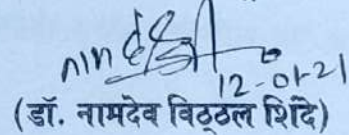 12-01-21
(डॉ. नामदेव विठ्ठल शिंदे)